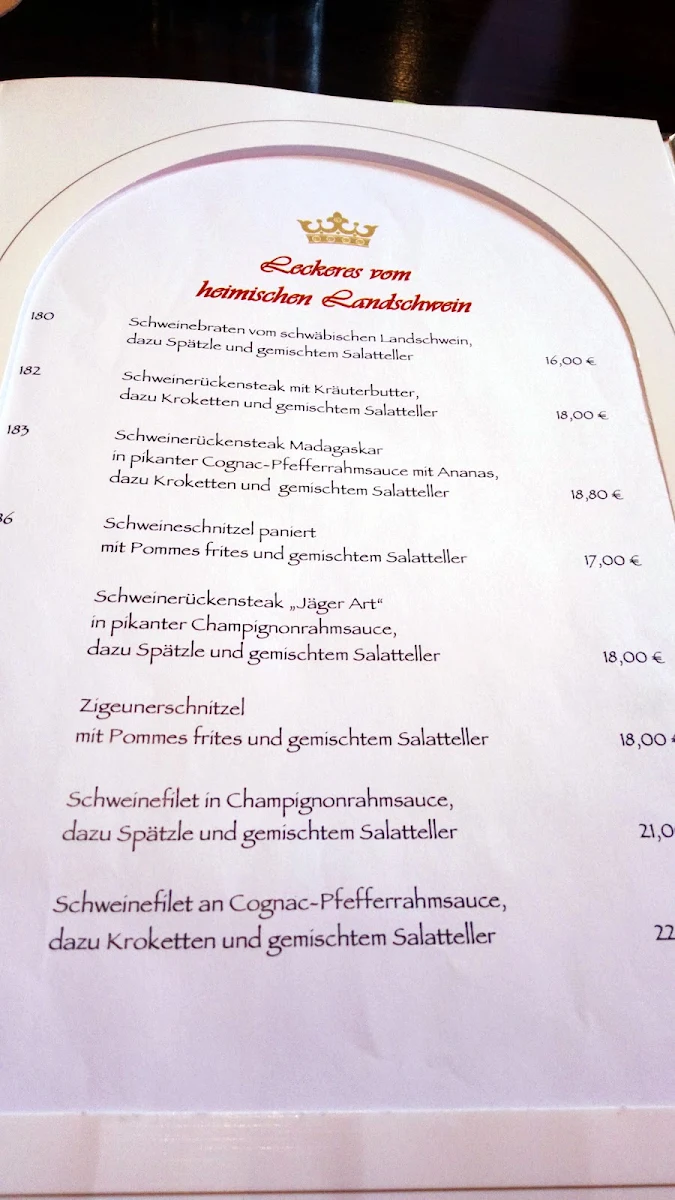 Leckeres vom
heimischen Landschwein
180 Schweinebraten vom schwäbischen Landschwein,
dazu Spätzle und gemischtem Salatteller 16,00 €
182 Schweinerückensteak mit Kräuterbutter,
dazu Kroketten und gemischtem Salatteller 18,00 €
183 Schweinerückensteak Madagaskar
in pikanter Cognac-Pfefferrahmsauce mit Ananas,
dazu Kroketten und gemischtem Salatteller 18,80 €
86 Schweineschnitzel paniert
mit Pommes frites und gemischtem Salatteller 17,00 €
Schweinerückensteak „Jäger Art“
in pikanter Champignonrahmsauce,
dazu Spätzle und gemischtem Salatteller 18,00 €
Zigeunerschnitzel
mit Pommes frites und gemischtem Salatteller 18,00
Schweinefilet in Champignonrahmsauce,
dazu Spätzle und gemischtem Salatteller 21,0
Schweinefilet an Cognac-Pfefferrahmsauce,
dazu Kroketten und gemischtem Salatteller 22